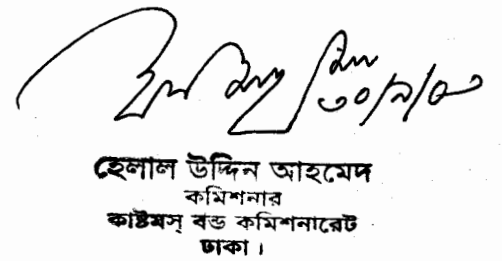 ৩০/৯/০৮
হেলাল উদ্দিন আহমেদ
কমিশনার
কাষ্টমস্ বন্ড কমিশনারেট
ঢাকা।